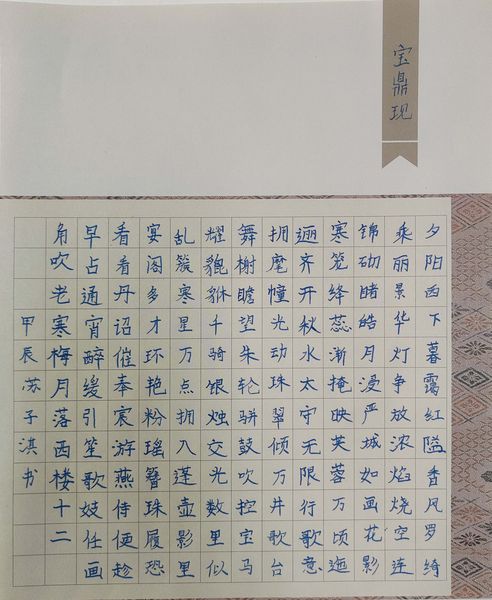 宝鼎现
夕阳西下暮霭红隘香风罗绮
乘丽景华灯争放浓焰烧空连
锦砌睹皓月浸严城如画花影
寒笼绛蕊渐掩映芙蓉万顷迤
逦齐开秋水太守无限行歌意
拥麾幢光动珠翠倾万井歌台
舞榭瞻望朱轮骈鼓吹控宝马
耀貔貅千骑银烛交光数里似
乱簇寒星万点拥入蓬壶影里
宴阁多才环艳粉瑶簪珠履恐
看看丹诏催奉宸游燕侍便趁
早占通宵醉缓引笙歌妓任画
角吹老寒梅月落西楼十二
甲辰苏子淇书